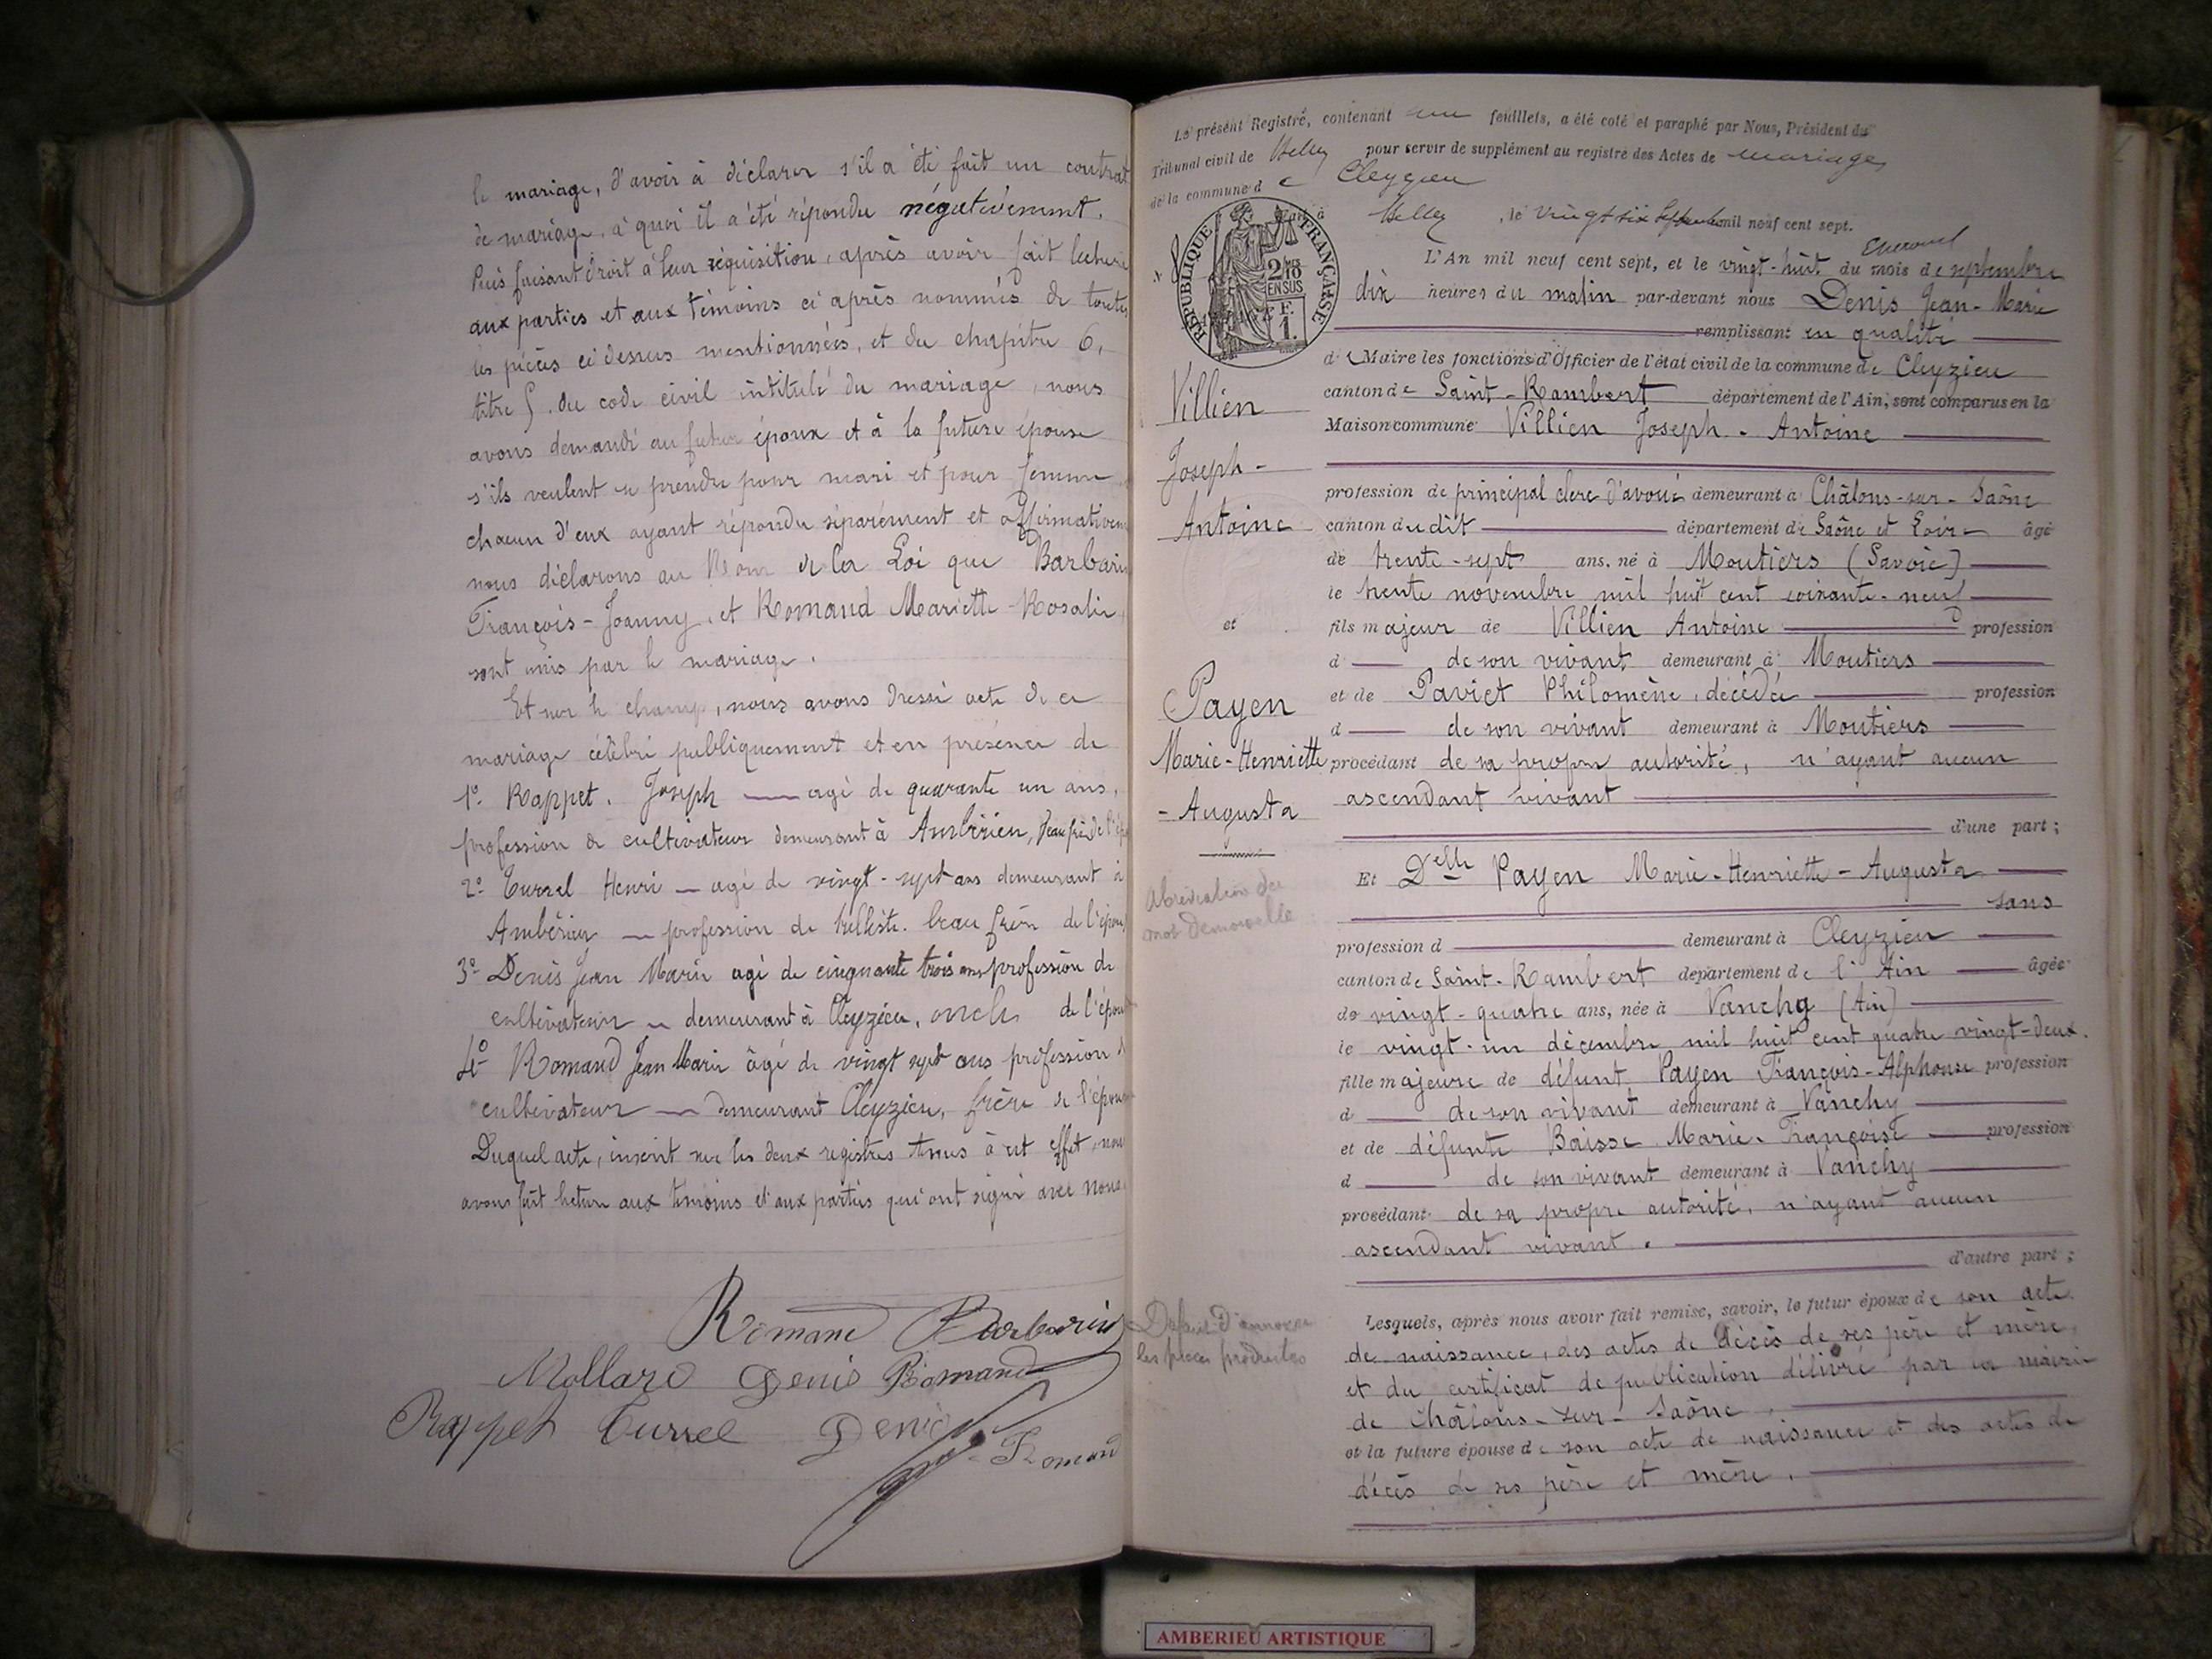 le mariage, d'avoir à déclarer s'il a été fait un contrat
de mariage, à quoi il a été répondu négativement.
Puis faisant droit à leur réquisition, après avoir fait lecture
aux parties et aux témoins ci après nommés de toutes
les pièces ci dessus mentionnées, et du chapitre 6,
titre 5. du code civil intitulé du mariage, nous
avons demandé au futur époux et à la future épouse
s'ils veulent se prendre pour mari et pour femme
chacun d'eux ayant répondu séparément et affirmativem
nous déclarons au Nom de la Loi que Barbarin
François-Joanny, et Romand Mariette-Rosalie
sont unis par le mariage.
Et sur le champ, nous avons dressé acte de ce
mariage célébré publiquement et en présence de
1° Rappet. Joseph agé de quarante un ans,
profession de cultivateur demeurant à Ambérieu, beau frère de l'ép
2° Tursel Henri agé de vingt-sept ans demeurant à
Ambérieu profession de beau frère de l'épou
3° Denis Jean Marie agé de cinquante trois ans profession de
cultivateur demeurant à Cleyzieu, oncle de l'épou
4° Romand Jean Marie âgé de vingt sept ans profession d
cultivateur demeurant Cleyzieu, frère de l'épou
Duquel acte, inscrit sur les deux registres tenus à cet effet, nous
avons fait lecture aux témoins et aux parties qui ont signé avec nous.
Romand Barbarin
Mollard Denis Romand
Rappet Tursel Denis
Romand
Le présent Registre, contenant un feuillets, a été coté et paraphé par Nous, Président du
Tribunal civil de Belley pour servir de supplément au registre des Actes de mariages
de la commune de Cleyzieu
Fait à Belley, le vingt six septembre mil neuf cent sept.
RÉPUBLIQUE FRANÇAISE
2/10 EN SUS
F.
1.
L'An mil neuf cent sept, et le vingt-huit du mois de septembre
dix heures du matin par-devant nous Denis Jean-Marie
remplissant en qualité
de Maire les fonctions d'Officier de l'état civil de la commune de Cleyzieu
canton de Saint-Rambert département de l'Ain, sont comparus en la
Maison commune Villien Joseph-Antoine
profession de principal clerc d'avoué demeurant à Châlons-sur-Saône
canton dudit département de Saône et Loire âgé
de trente-sept ans, né à Moutiers (Savoie)
le trente novembre mil huit cent soixante-neuf
fils majeur de Villien Antoine profession
d de son vivant demeurant à Moutiers
et de Paviet Philomène, décédée profession
d de son vivant demeurant à Moutiers
procédant de sa propre autorité, n'ayant aucun
ascendant vivant
d'une part;
Et Delle Payen Marie-Henriette-Augusta
sans
profession d demeurant à Cleyzieu
canton de Saint-Rambert département de l'Ain âgée
de vingt-quatre ans, née à Vanchy (Ain)
le vingt-un décembre mil huit cent quatre vingt-deux.
fille majeure de défunt Payen François-Alphonse profession
d de son vivant demeurant à Vanchy
et de défunte Baisse Marie-Françoise profession
d de son vivant demeurant à Vanchy
procédant de sa propre autorité, n'ayant aucun
ascendant vivant.
d'autre part;
Lesquels, après nous avoir fait remise, savoir, le futur époux de son acte
de naissance, des actes de décès de ses père et mère,
et du certificat de publication délivré par la mairie
de Châlons-sur-Saône,
et la future épouse de son acte de naissance et des actes de
décès de ses père et mère.
Villien
Joseph-
Antoine
et
Payen
Marie-Henriette
-Augusta
Abréviation du
mot demoiselle
Défaut d'annexe
les pièces produites
AMBERIEU ARTISTIQUE